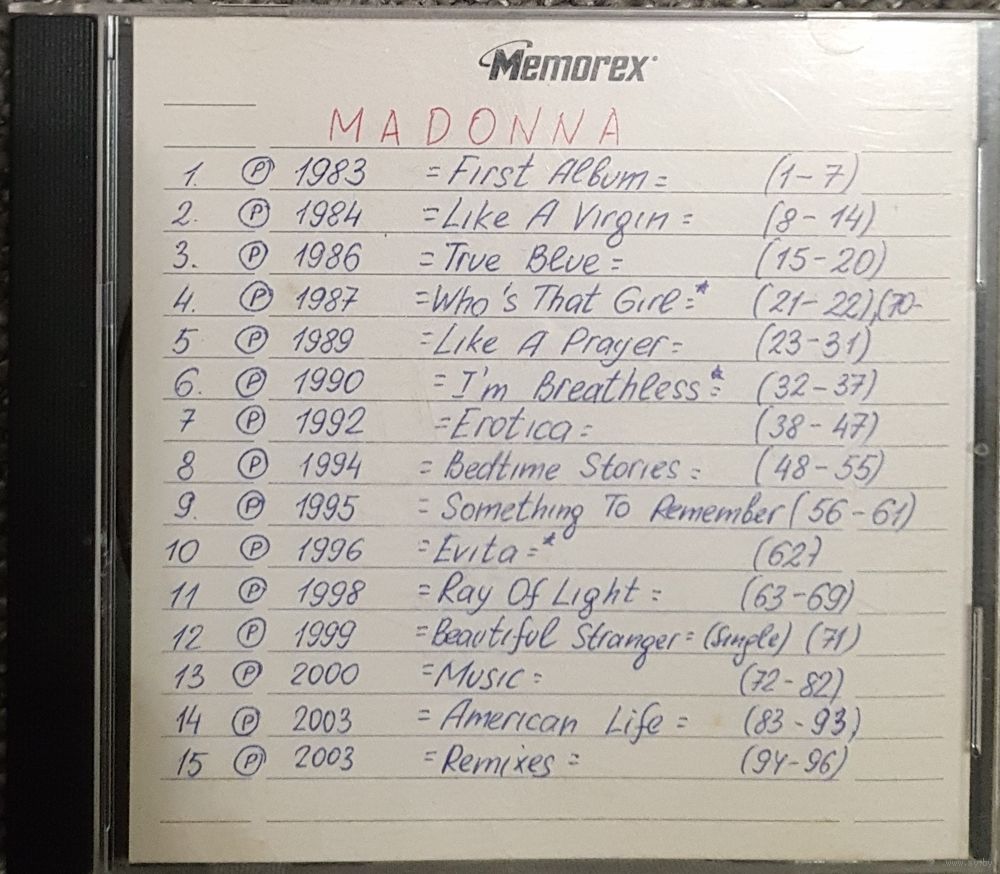 Memorex
MADONNA
1. Ⓟ 1983 =First Album= (1-7)
2. Ⓟ 1984 =Like A Virgin= (8-14)
3. Ⓟ 1986 =True Blue= (15-20)
4. Ⓟ 1987 =Who's That Girl=* (21-22),(70-
5 Ⓟ 1989 =Like A Prayer= (23-31)
6. Ⓟ 1990 =I'm Breathless=* (32-37)
7 Ⓟ 1992 =Erotica= (38-47)
8 Ⓟ 1994 =Bedtime Stories= (48-55)
9. Ⓟ 1995 =Something To Remember (56-61)
10 Ⓟ 1996 =Evita=* (62)
11 Ⓟ 1998 =Ray Of Light= (63-69)
12 Ⓟ 1999 =Beautiful Stranger= (Single) (71)
13 Ⓟ 2000 =Music= (72-82)
14 Ⓟ 2003 =American Life= (83-93)
15 Ⓟ 2003 =Remixes= (94-96)